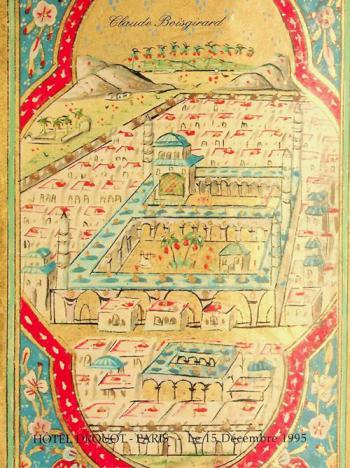 Claude Boisgirard
HOTEL DROUOT - PARIS - Le 15 Décembre 1995